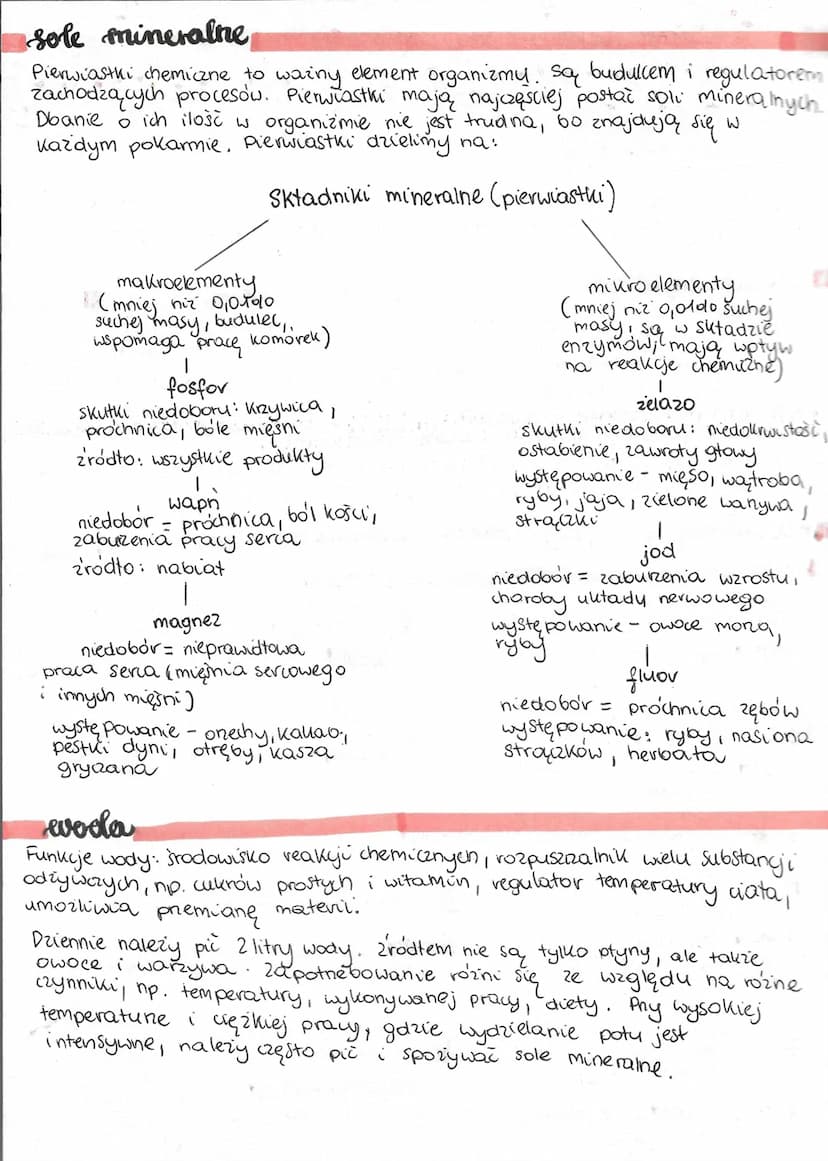 sole mineralne
Pierwiastki chemiczne to ważny element organizmu. Są budulcem i regulatorem
zachodzących procesów. Pierwiastki mają najczęściej postać soli mineralnych
Dbanie o ich ilość w organizmie nie jest trudna, bo znajdują się w
każdym pokarmie. Pierwiastki dzielimy na:
Składniki mineralne (pierwiastki)
makroelementy
(mniej niż 0,01%
suchej masy, budulec,
wspomaga pracę komórek)
fosfor
skutki niedoboru: krzywica,
próchnica, bóle mięśni
źródło: wszystkie produkty
wapń
niedobór = próchnica, ból kości,
zaburzenia pracy serca
źródło: nabiał
magnez
niedobór = nieprawidłowa
praca serca (mięśnia sercowego
i innych mięśni)
występowanie - orzechy, kakao,
pestki dyni, otręby, kasza
gryczana
mikroelementy
(mniej niż 0,01% suchej
masy, są w składzie
enzymów, mają wpływ
na reakcje chemiczne)
żelazo
skutki niedoboru: niedokrwistość,
osłabienie, zawroty głowy
występowanie - mięso, wątroba,
ryby, jaja, zielone warzywa,
strączki
jod
niedobór = zaburzenia wzrostu,
choroby układu nerwowego
występowanie - owoce morza,
ryby
fluor
niedobór = próchnica zębów
występowanie: ryby, nasiona
strączków, herbata
woda
Funkcje wody: środowisko reakcji chemicznych, rozpuszczalnik wielu substancji
odżywczych, np. cukrów prostych i witamin, regulator temperatury ciała,
umożliwia przemianę materii.
Dziennie należy pić 2 litry wody. Źródłem nie są tylko płyny, ale także
owoce i warzywa. Zapotrzebowanie różni się ze względu na różne
czynniki, np. temperatury, wykonywanej pracy, diety. Przy wysokiej
temperaturze i ciężkiej pracy, gdzie wydzielanie potu jest
intensywne, należy często pić i spożywać sole mineralne.